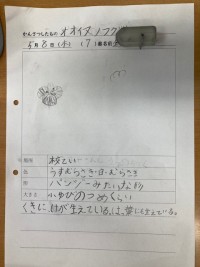 かんさつしたもの オオイヌノフグリ
5月8日(水) (7)番名前
校てい
色 うすむらさき・白・むらさき
形 パンジーみたいな形
大きさ 小ゆびのつめくらい
くきに、けが生えている。は、葉にも生えている。